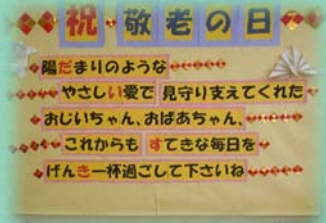 祝敬老の日
陽だまりのような
やさしい愛で 見守り支えてくれた
おじいちゃん、おばあちゃん、
これからも すてきな毎日を
げんき一杯過ごして下さいね